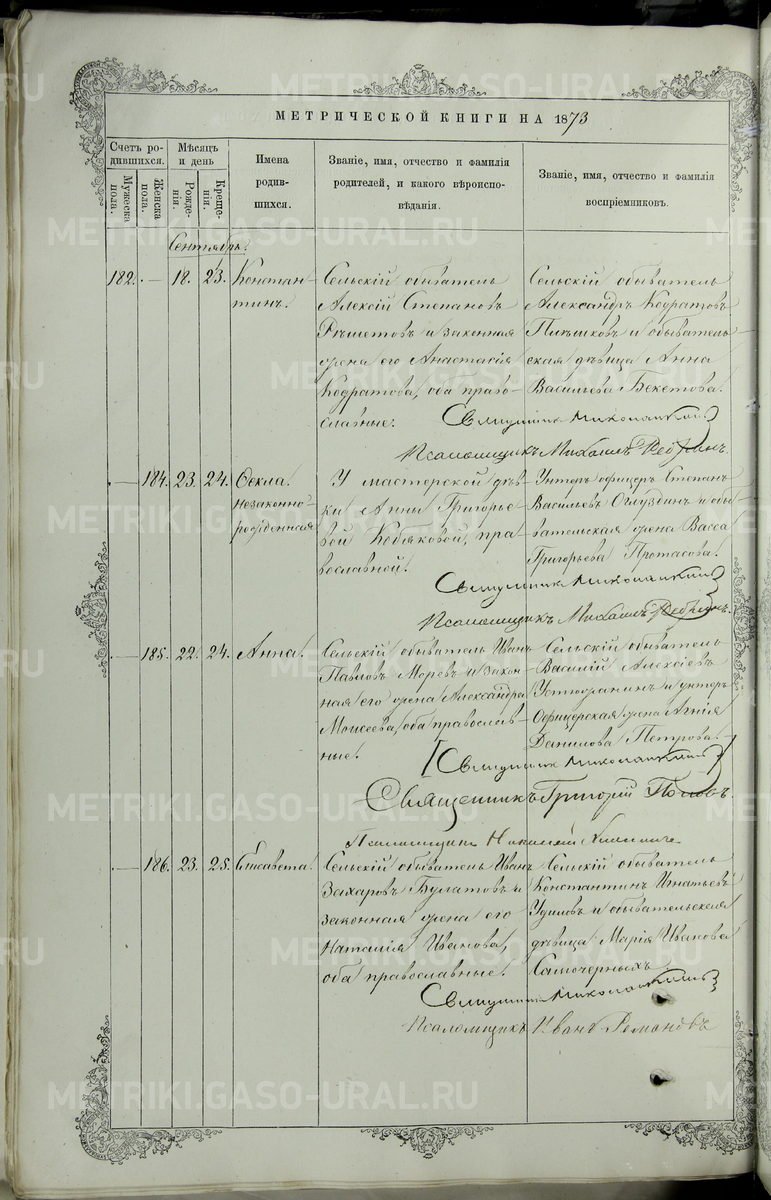 МЕТРИЧЕСКОЙ КНИГИ НА 1873
Счетъ родившихся.
Мужеска пола.
Женска пола.
Мѣсяцъ и день
Рожденія.
Крещенія.
Имена родившихся.
Званіе, имя, отчество и фамилія родителей, и какого вѣроисповѣданія.
Званіе, имя, отчество и фамилія воспріемниковъ.
Сентябрь.
182. — 18. 23. Констан-
тинъ.
Сельскій обыватель
Алексій Степановъ
Рѣшетовъ и законная
жена его Анастасія
Кодратова, оба право-
славные.
Сельскій обыватель
Александръ Кодратовъ
и обыватель-
ская дѣвица Анна
Васильева Бекетова.
Священникъ
Псаломщикъ Михаилъ
— 184. 23. 24. Ѳекла.
незаконно-
рожденная
У мастерской дѣв-
ки Анны Григорье-
вой, пра-
вославной.
Унтеръ офицеръ Степанъ
Васильевъ и обы-
вательская жена Васса
Григорьева Протасова.
Священникъ
Псаломщикъ Михаилъ
— 185. 22. 24. Анна.
Сельскій обыватель Иванъ
Павловъ и закон-
ная его жена Александра
Моисеева, оба православ-
ные.
Сельскій обыватель
Василій Алексіевъ
Устюжанинъ и унтеръ
Офицерская жена Агнія
Данилова Петрова.
Священникъ
Священникъ Григорій Поповъ.
Псаломщикъ Николай
— 186. 23. 25. Елисавета.
Сельскій обыватель Иванъ
Захаровъ Булатовъ и
законная жена его
Наталія Иванова,
оба православные.
Сельскій обыватель
Константинъ Игнатьевъ
и обывательская
дѣвица Марія Иванова
Самочерныхъ
Священникъ
Псаломщикъ Иванъ Романовъ
METRIKI.GASO-URAL.RU